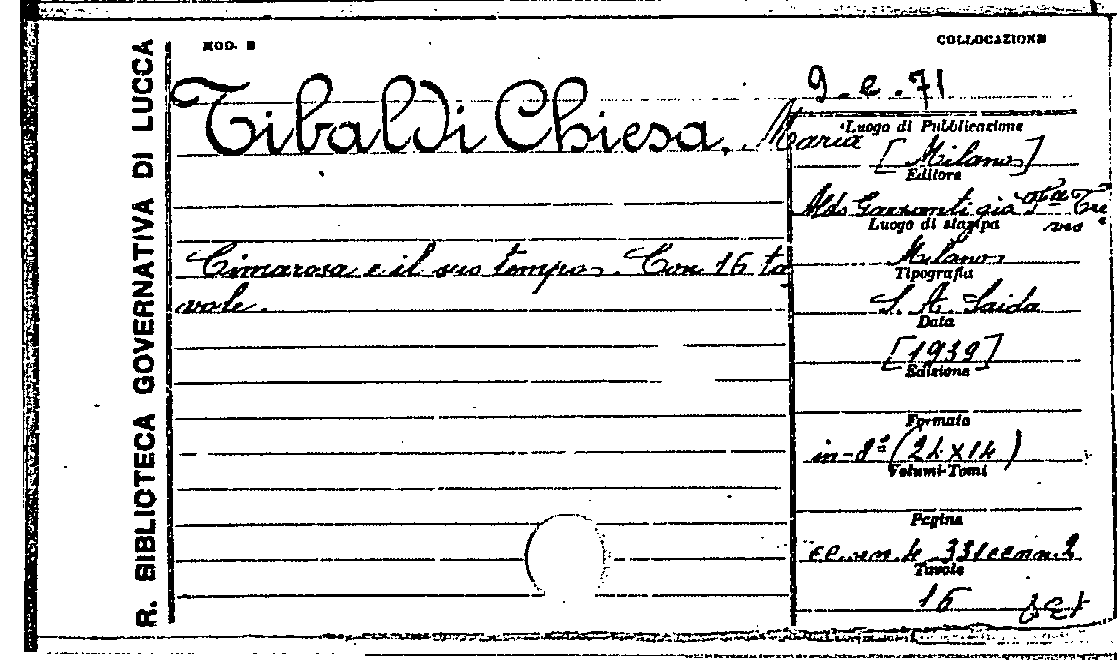 R. BIBLIOTECA GOVERNATIVA DI LUCCA
MOD. B
COLLOCAZIONE
9.e.71
Tibaldi Chiesa, Maria
Luogo di Pubblicazione
[Milano]
Editore
Aldo Garzanti già
Luogo di stampa
Milano
Tipografia
S. A. Saida
Data
[1939]
Edizione
Formato
in-8º (21x14)
Volumi-Tomi
Pagine
Tavole
16
Cimarosa e il suo tempo. Con 16 ta
vole.